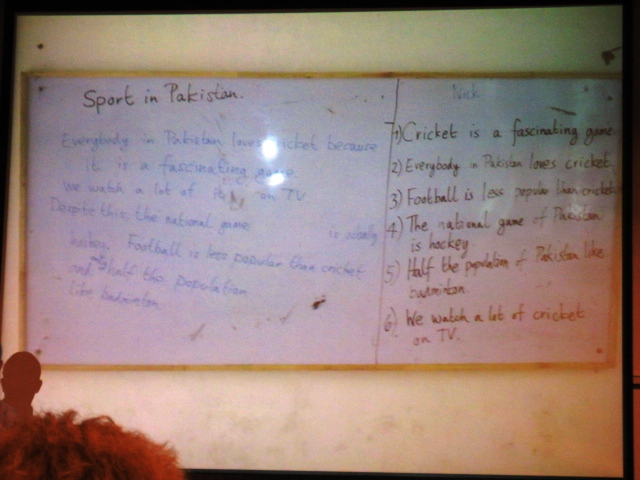 Sport in Pakistan.
Everybody in Pakistan loves cricket because
it is a fascinating game.
We watch a lot of it on TV
Despite this, the national game is actually
hockey. Football is less popular than cricket
and half the population
like badminton.
Nick
1) Cricket is a fascinating game.
2) Everybody in Pakistan loves cricket.
3) Football is less popular than cricket
4) The national game of Pakistan
is hockey
5) Half the population of Pakistan like
badminton.
6) We watch a lot of cricket
on TV.